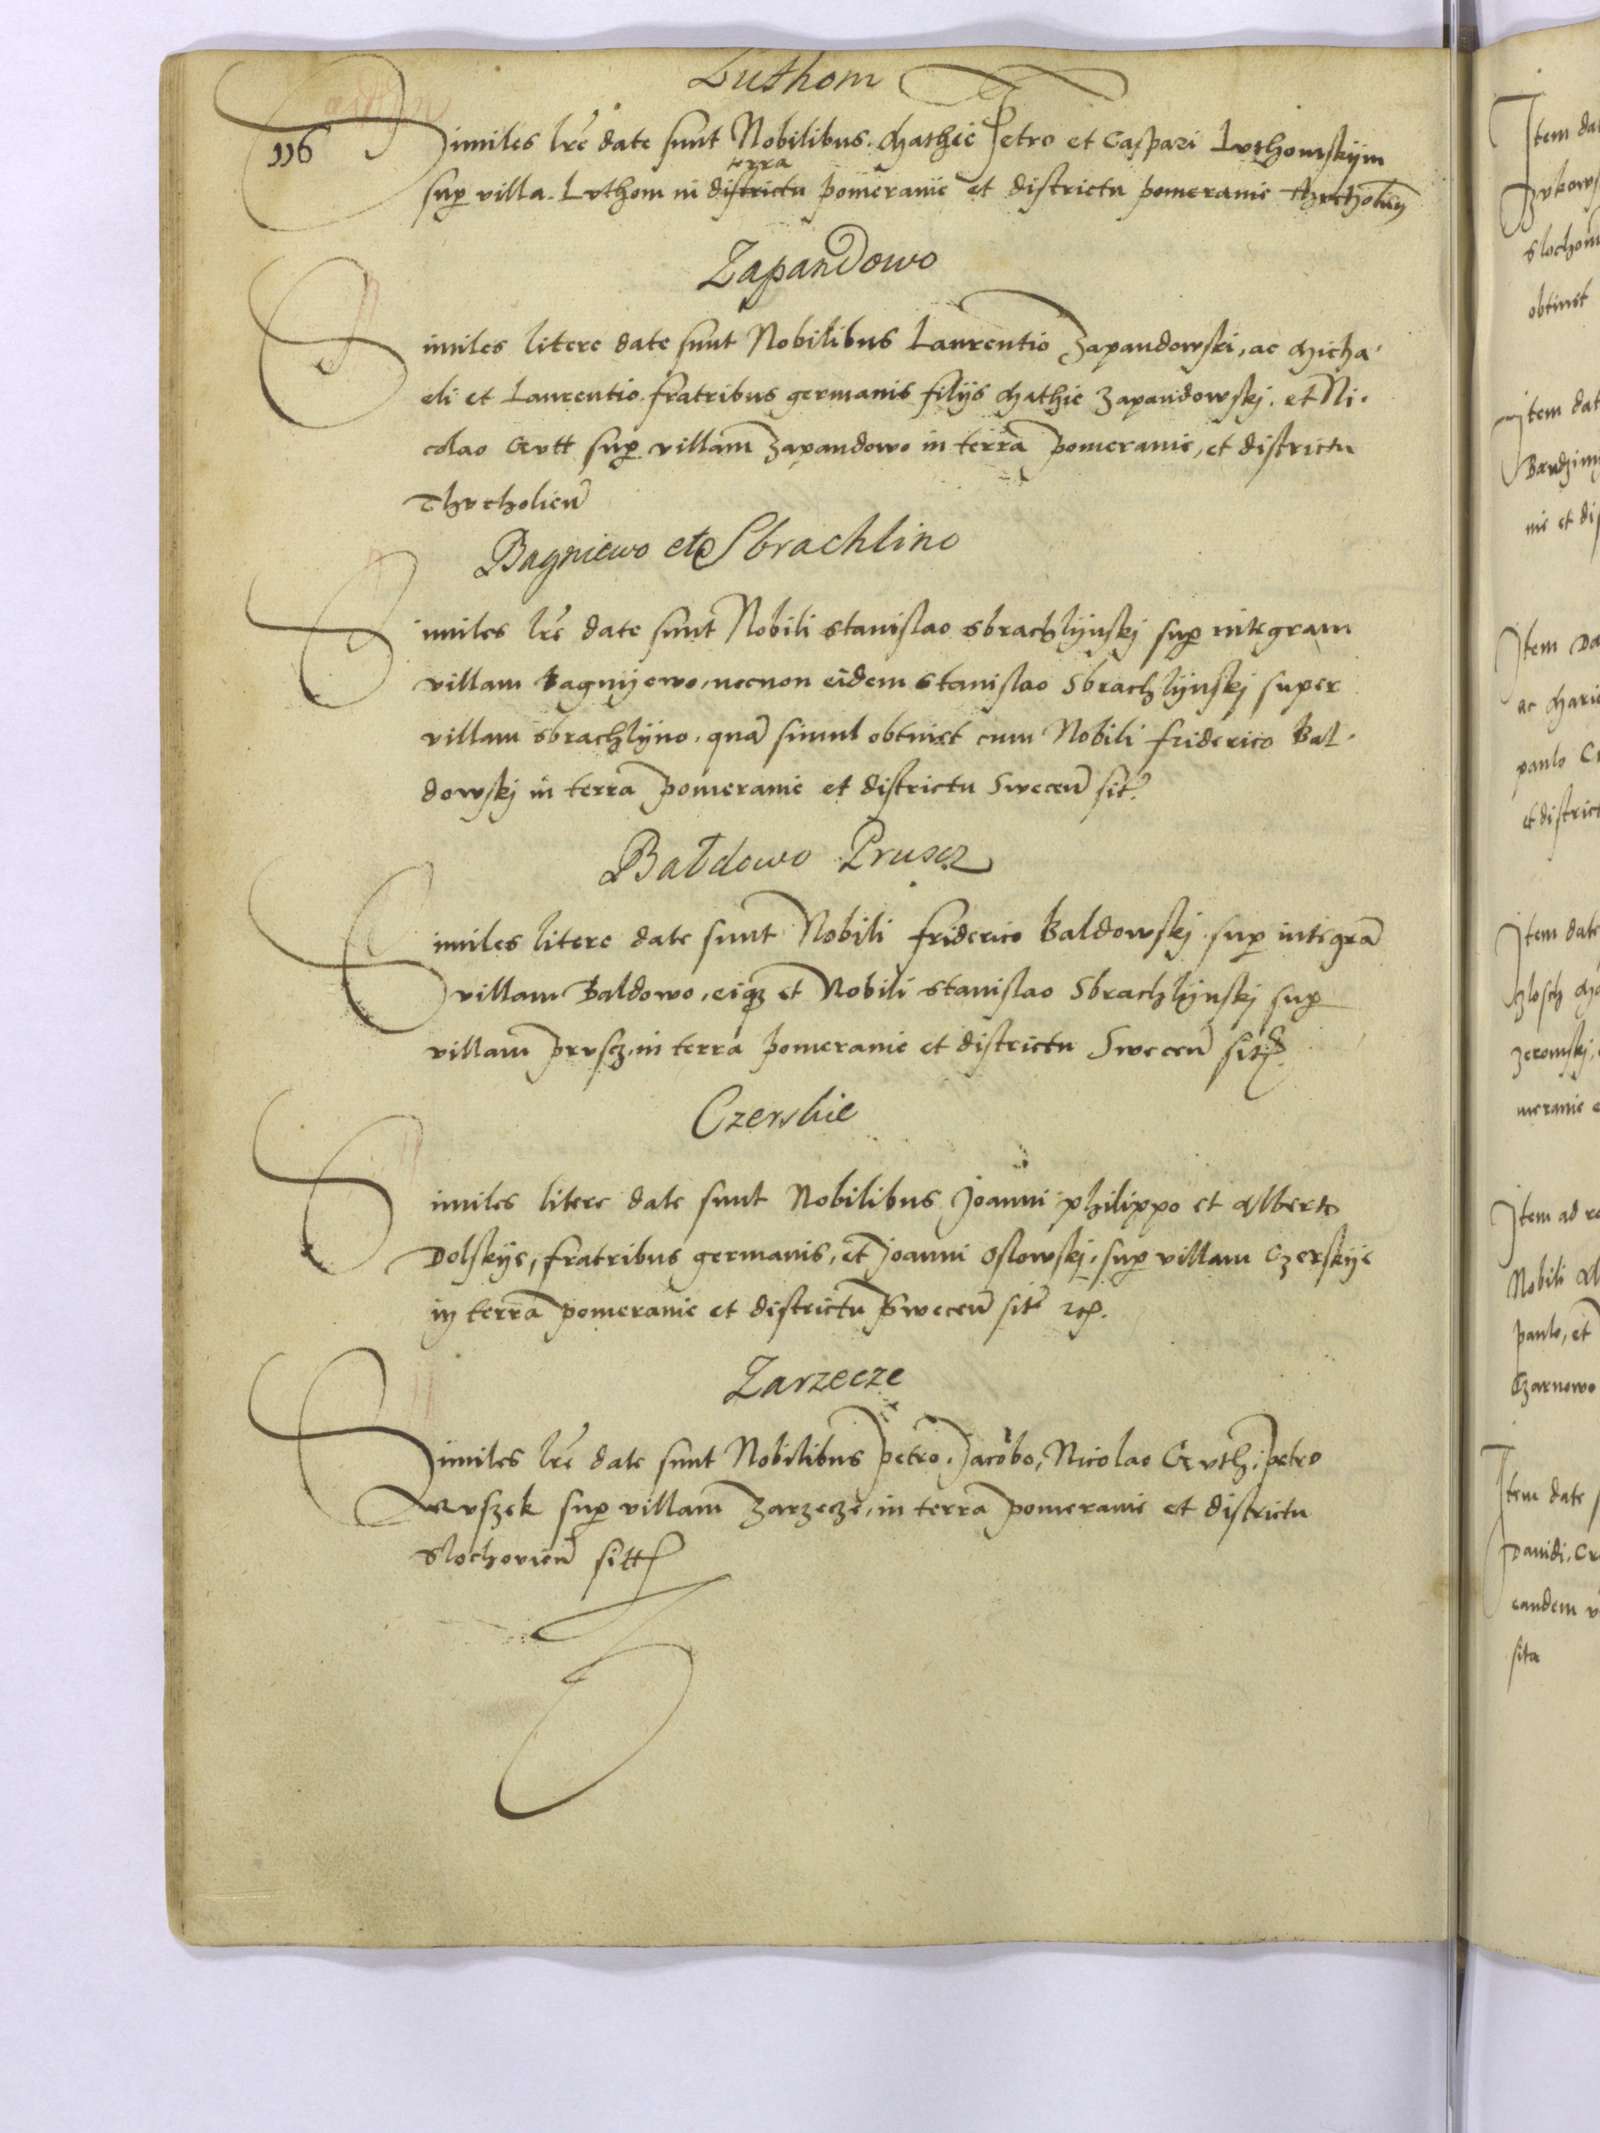 Luthom
116
Similes lre date sunt Nobilibus. Mathie Petro et Caspari Lvthomskijm
sup villa. Lvthom in districtu terra pomeranie et districtu pomeranie
Zapandowo
Similes litere date sunt Nobilibus Laurentio Zapandowski, ac Micha
eli et Laurentio fratribus germanis filijs Mathie Zapandowskj. et Ni.
colao Gutt sup villam Zapandowo in terra pomeranie, et districtu
Thvcholien
Bagniewo et Sbrachlino
Similes lre date sunt Nobili Stanislao Sbrachlijnskj sup integram
villam Bagnijewo, necnon eidem Stanislao Sbrachlijnskj super
villam Sbrachlijno. qua simul obtinet cum Nobili Friderico Bal.
dowskj in terra pomeranie et districtu Swecen sit.
Baldowo Pruscz
Similes litere date sunt Nobili Friderico Baldowskj. sup integra
villam Baldowo, eiqz et Nobili Stanislao Sbrachlijnskj sup
villam prvscz, in terra pomeranie et districtu Swecen sit.
Czerskie
Similes litere date sunt Nobilibus Joanni philippo et Alberto
Dolskijs, fratribus germanis, et Joanni Oslowskj, sup villam Czerskije
in terra pomeranie et districtu Swecen sit etc.
Zarzecze
Similes lre date sunt Nobilibus petro. Jacobo, Nicolao Gvth. petro
sup villam Zarzecze, in terra pomeranie et districtu
Slochovien sitt
Item dat
slochom
obtinet
Item dat
nie et dis
Item Da
ac Marie
paulo
et district
Item date
meranie e
Item ad re
Nobili Al
paulo, et
Czarnowo
Item date
Dauidi. Cr
eandem v
sita